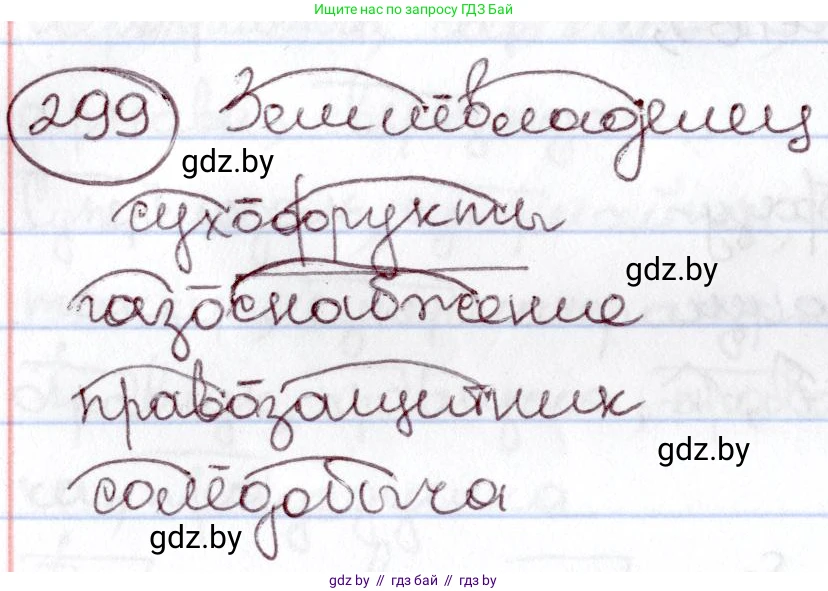 Ищите нас по запросу ГДЗ Бай
299 Землевладелец
gdz.by
сухофрукты
gdz.by
газоснабжение
правозащитник
gdz.by
соледобыча
gdz.by
gdz.by // гдз бай // гдз by